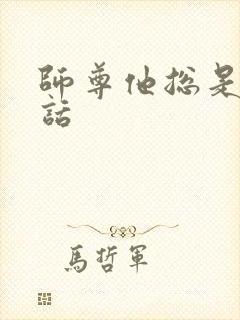 師尊他總是
話
馬哲軍